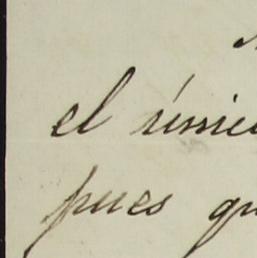 el únic
pues qu